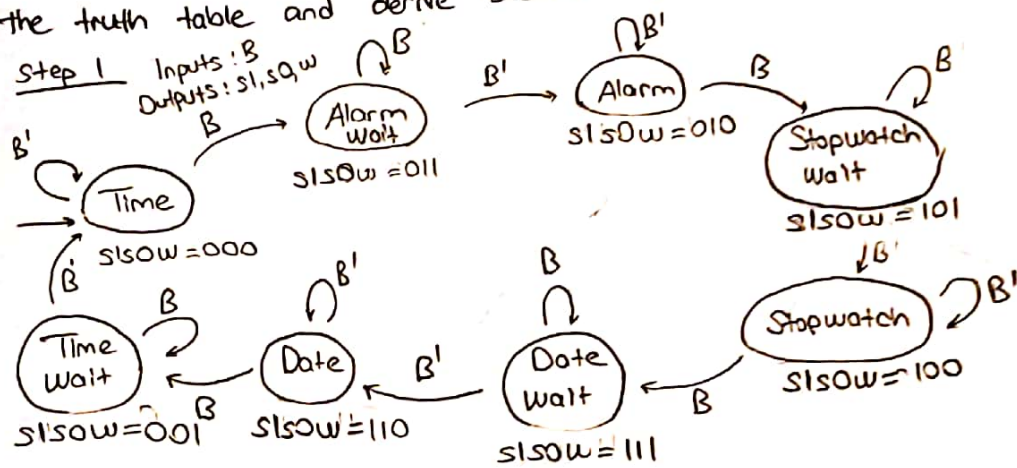 the truth table and derive
Step 1 Inputs : B
Outputs : s1, s0, w
B
Alarm
wait
s1s0w = 011
B'
B'
Alarm
s1s0w = 010
B
B
Stopwatch
wait
s1s0w = 101
B'
B
Time
s1s0w = 000
B'
Stopwatch
B'
s1s0w = 100
B
Date
wait
s1s0w = 111
B
B'
Date
B'
s1s0w = 110
B
Time
wait
B
s1s0w = 001
B'